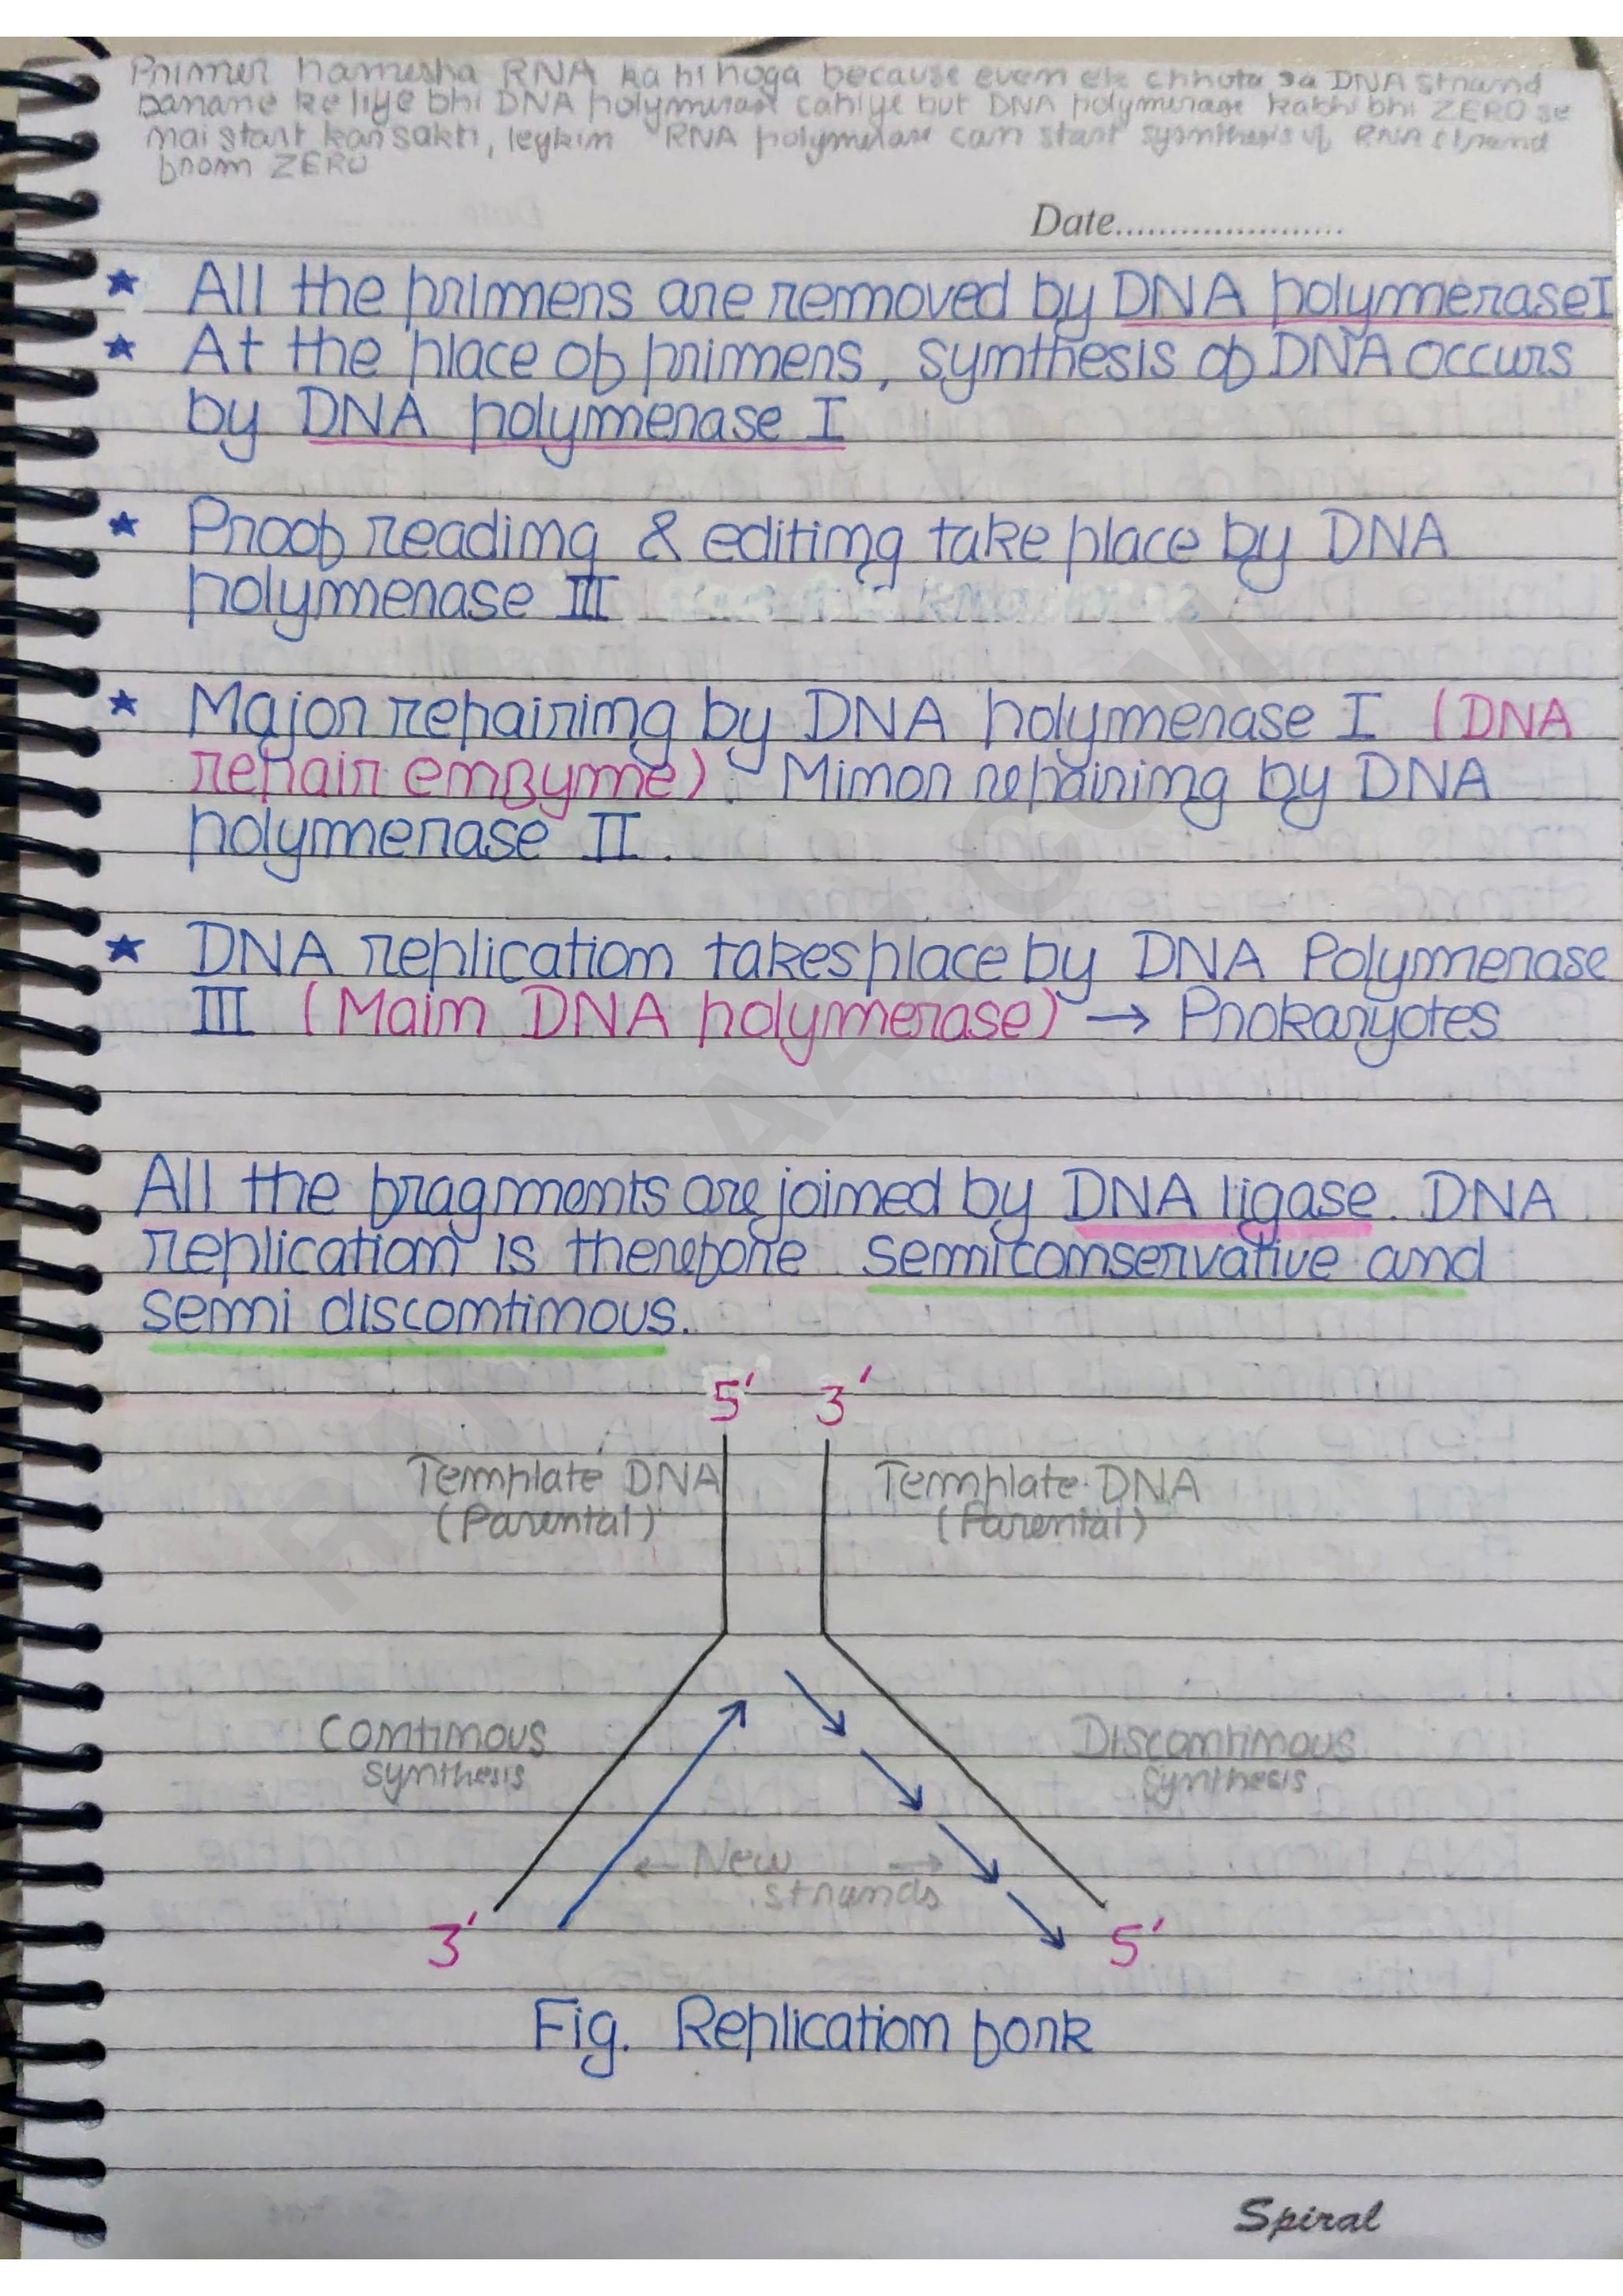 Primer hamesha RNA ka hi hoga because even ek chhota sa DNA strand
banane ke liye bhi DNA polymerase cahiye but DNA polymerase kabhi bhi ZERO se
nai start kar sakti, leykin RNA polymerase can start sysnthesis of RNA strand
from ZERO
Date......................
★ All the primers are removed by DNA polymerase I
★ At the place of primers, synthesis of DNA occurs
by DNA polymerase I
★ Proof reading & editing take place by DNA
polymerase III
★ Major repairing by DNA polymerase I (DNA
repair enzyme). Minor repairing by DNA
polymerase II.
★ DNA replication takes place by DNA Polymerase
III (Main DNA polymerase) → Prokaryotes
All the fragments are joined by DNA ligase. DNA
replication is therefore semiconservative and
semi discontinous.
5' 3'
Template DNA Template DNA
(Parental) (Parental)
Continous Discontinous
synthesis synthesis
← New →
strands
3' 5'
Fig. Replication fork
Spiral